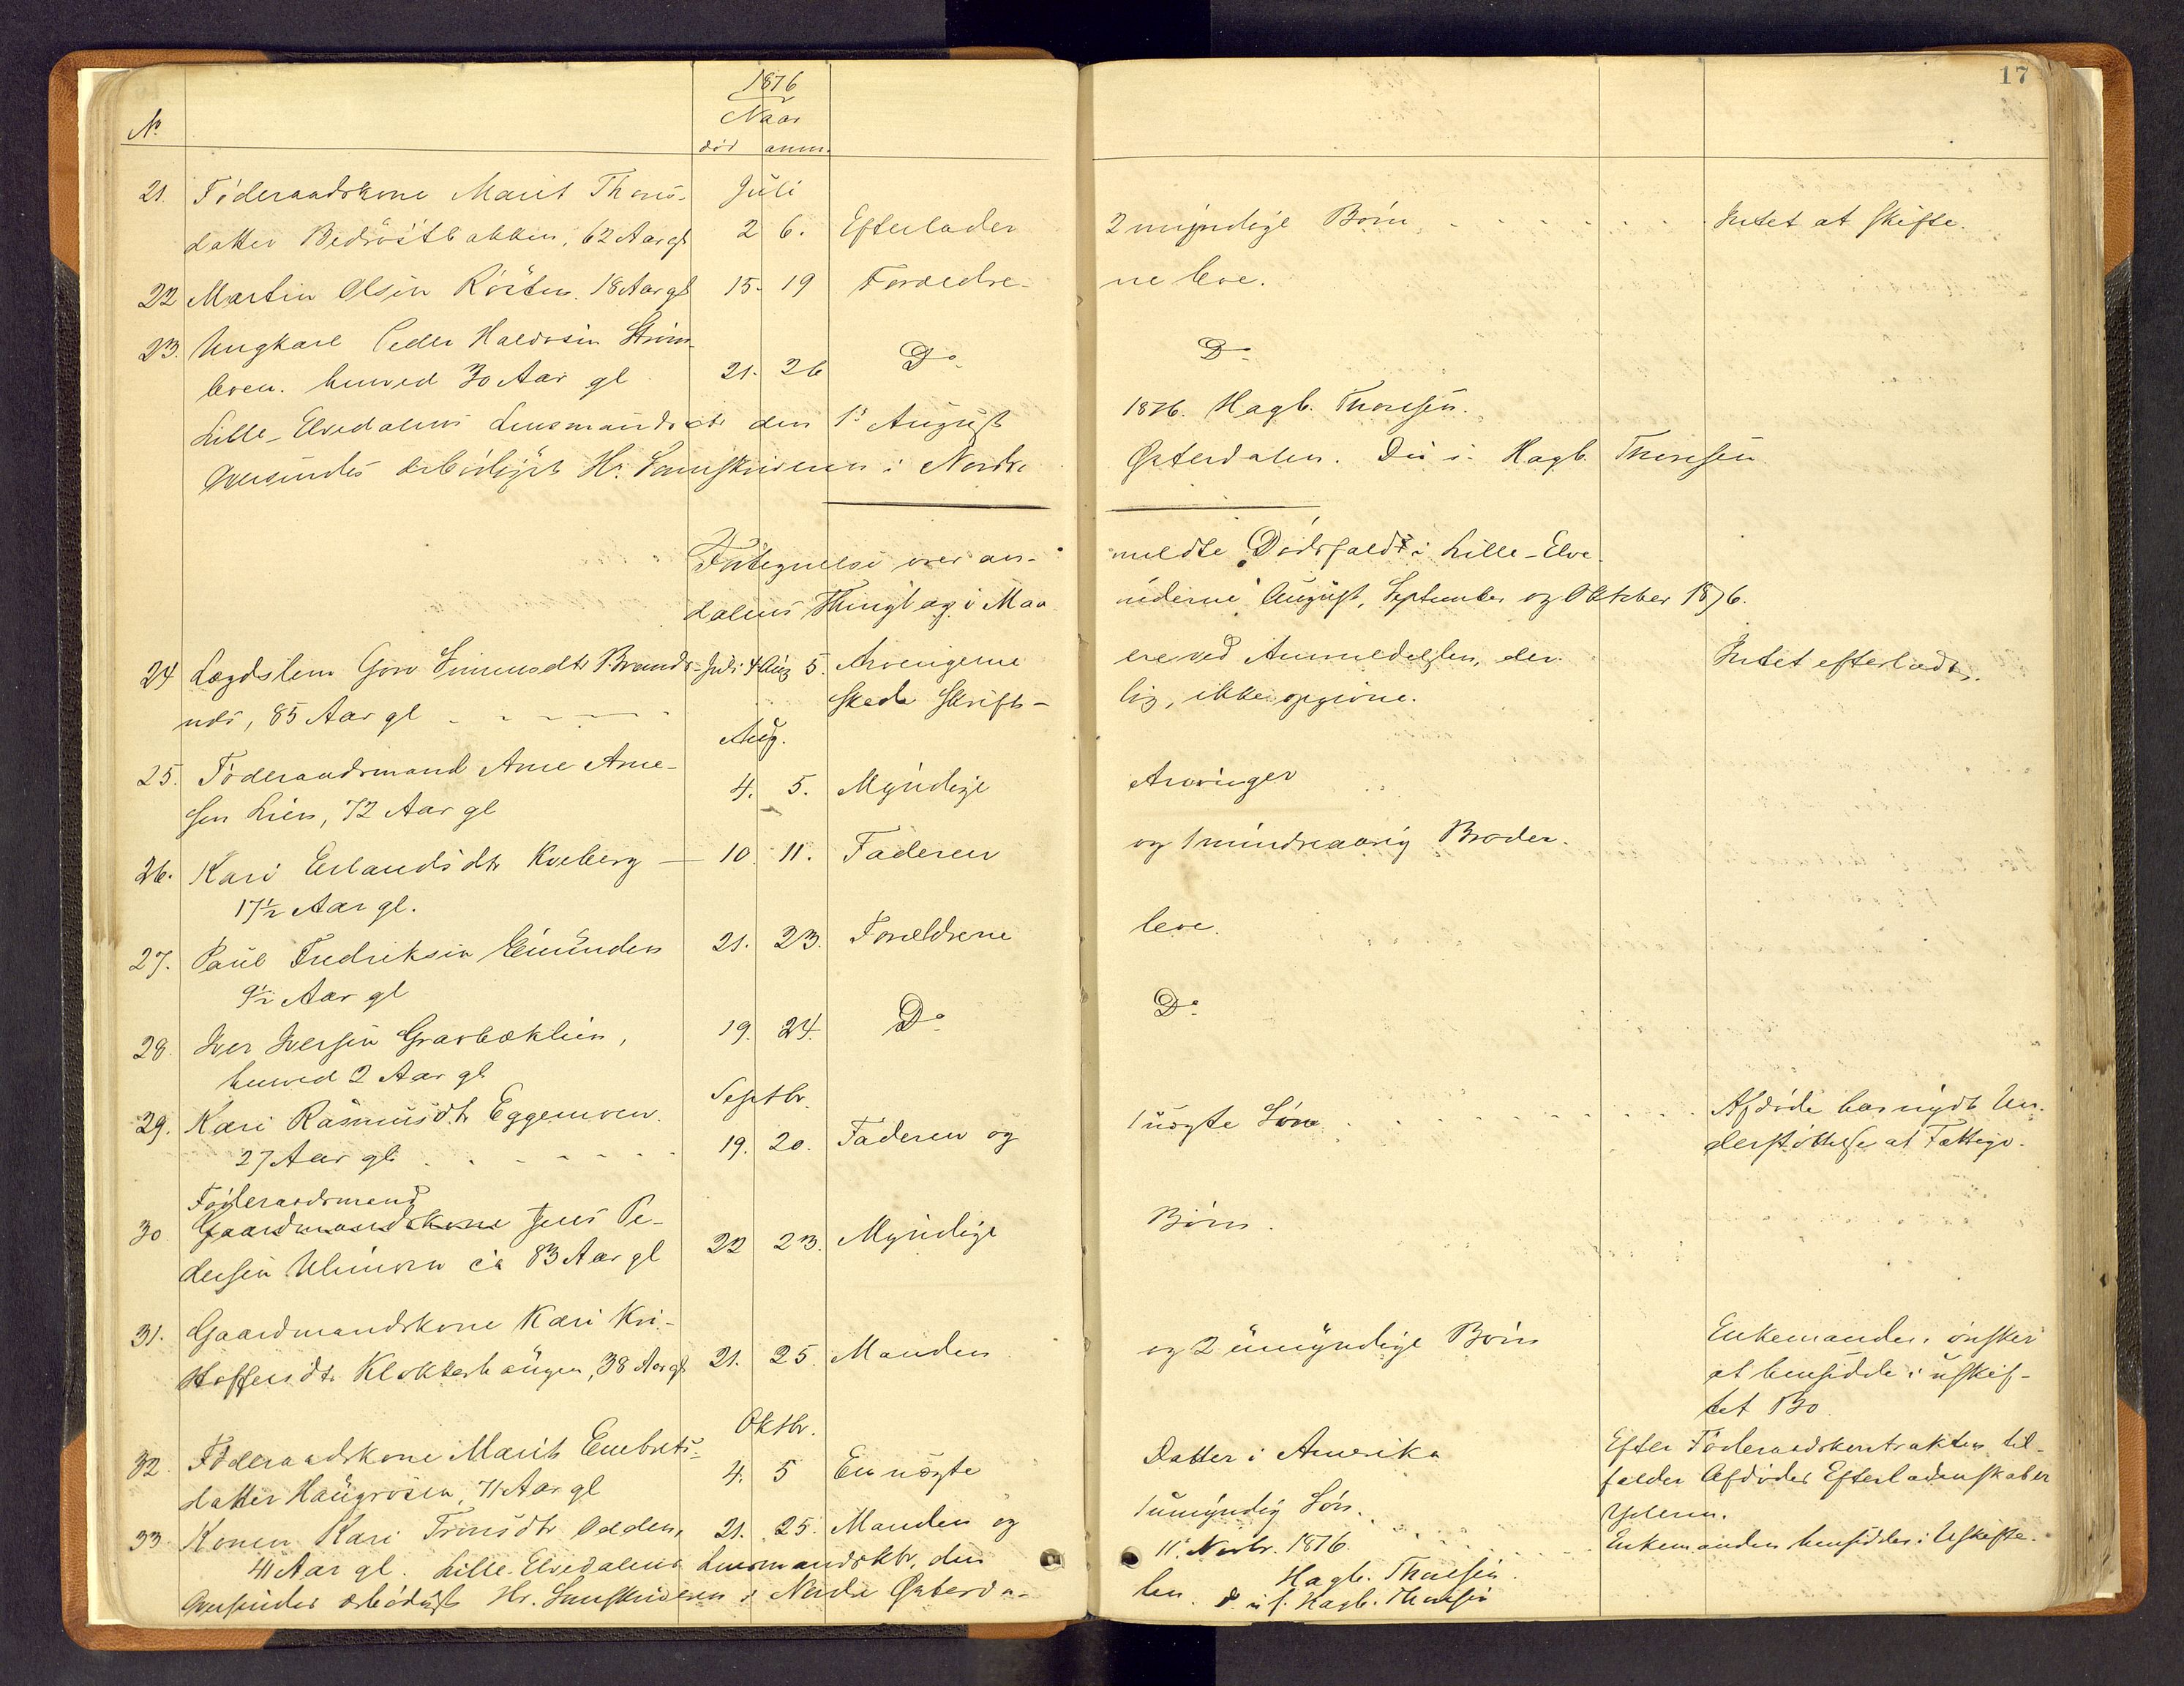 17
1876
Naar
No
død anm.
21. Föderaadskone Marit Thors- Juli
datter Bedröstbakken, 62 Aar gl 2 6. Efterlader 2 myndige Börn Intet at skifte.
22 Martin Olsen Röeten. 18 Aar gl 15. 19 Forældre- ne leve.
23. Ungkarl Peder Haldosen Ström-
leven. henved 30 Aar gl 21. 26 Do Do
Lille-Elvedalens Lensmandsktr den 1ste August 1876. Hagb. Thoresen.
Oversendes ærbödigst Hr. Sorenskriveren i Nordre Østerdalen. D.u.s. Hagb. Thoresen
Fortegnelse over an- meldte Dødsfald i Lille-Elve-
dalens Thinglag i Maa- nederne August, September og Oktober 1876.
24 Lægdslem Goro Simensdtr Brænd- Juli 4 Aug 5. Arvingerne ere ved Anmeldelsen, der Intet efterladt.
nds, 85 Aar gl skede skrift- lig, ikke opgivne.
Aug.
25. Föderaadsmand Arne Arne-
sen Lien, 72 Aar gl 4. 5. Myndige Arvinger
26. Kari Erlandsdtr Kveberg 10. 11. Faderen og 1 mindreaarig Broder.
17½ Aar gl.
27. Paul Fredriksen Eimunden 21. 23. Forældrene leve.
9½ Aar gl
28. Iver Iversen Grasbæklien, 19. 24. Do Do
henved 2 Aar gl
29. Kari Rasmusdtr Eggemoen. Septbr.
27 Aar gl. 19. 20. Faderen og 1 uægte Søn Afdøde har nydt Un-
derstøttelse af Fattigv.
Föderaadsmand
30 Gaardmandskone Jens Pe-
dersen Ulvmoen ca 83 Aar gl 22 23. Myndige Börn.
31. Gaardmandskone Kari Kri-
stoffersdtr Klokkerhaugen, 38 Aar gl 21. 25. Manden og 2 umyndige Börn Enkemanden önsker
at hensidde i uskif-
tet Bo
Oktbr.
32. Föderaadskone Marit Embrets-
datter Haugrösen, 71 Aar gl 4. 5 En uægte Datter i Amerika Efter Föderaadskontrakten til-
falder Afdödes Efterladenskaber
Yderen.
33 Konen Kari Trönsdtr Odden, 21. 25. Manden og 1 umyndig Sön. Enkemanden hensidder i Uskifte.
41 Aar gl. Lille-Elvedalens Lensmandsktr. den 11te Novbr. 1876.
Hagb. Thoresen.
Oversendes ærbödigst Hr. Sorenskriveren i Nordre Østerda- len. d.u.s. Hagb. Thoresen